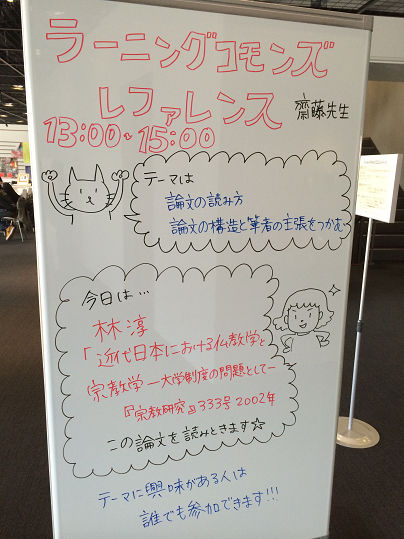 ラーニングコモンズ
レファレンス 齋藤先生
13:00~15:00
テーマは
論文の読み方
論文の構造と筆者の主張をつかむ
今日は…
林淳
「近代日本における仏教学と
宗教学―大学制度の問題として―
『宗教研究』333号 2002年
この論文を読みときます☆
テーマに興味がある人は
誰でも参加できます!!!